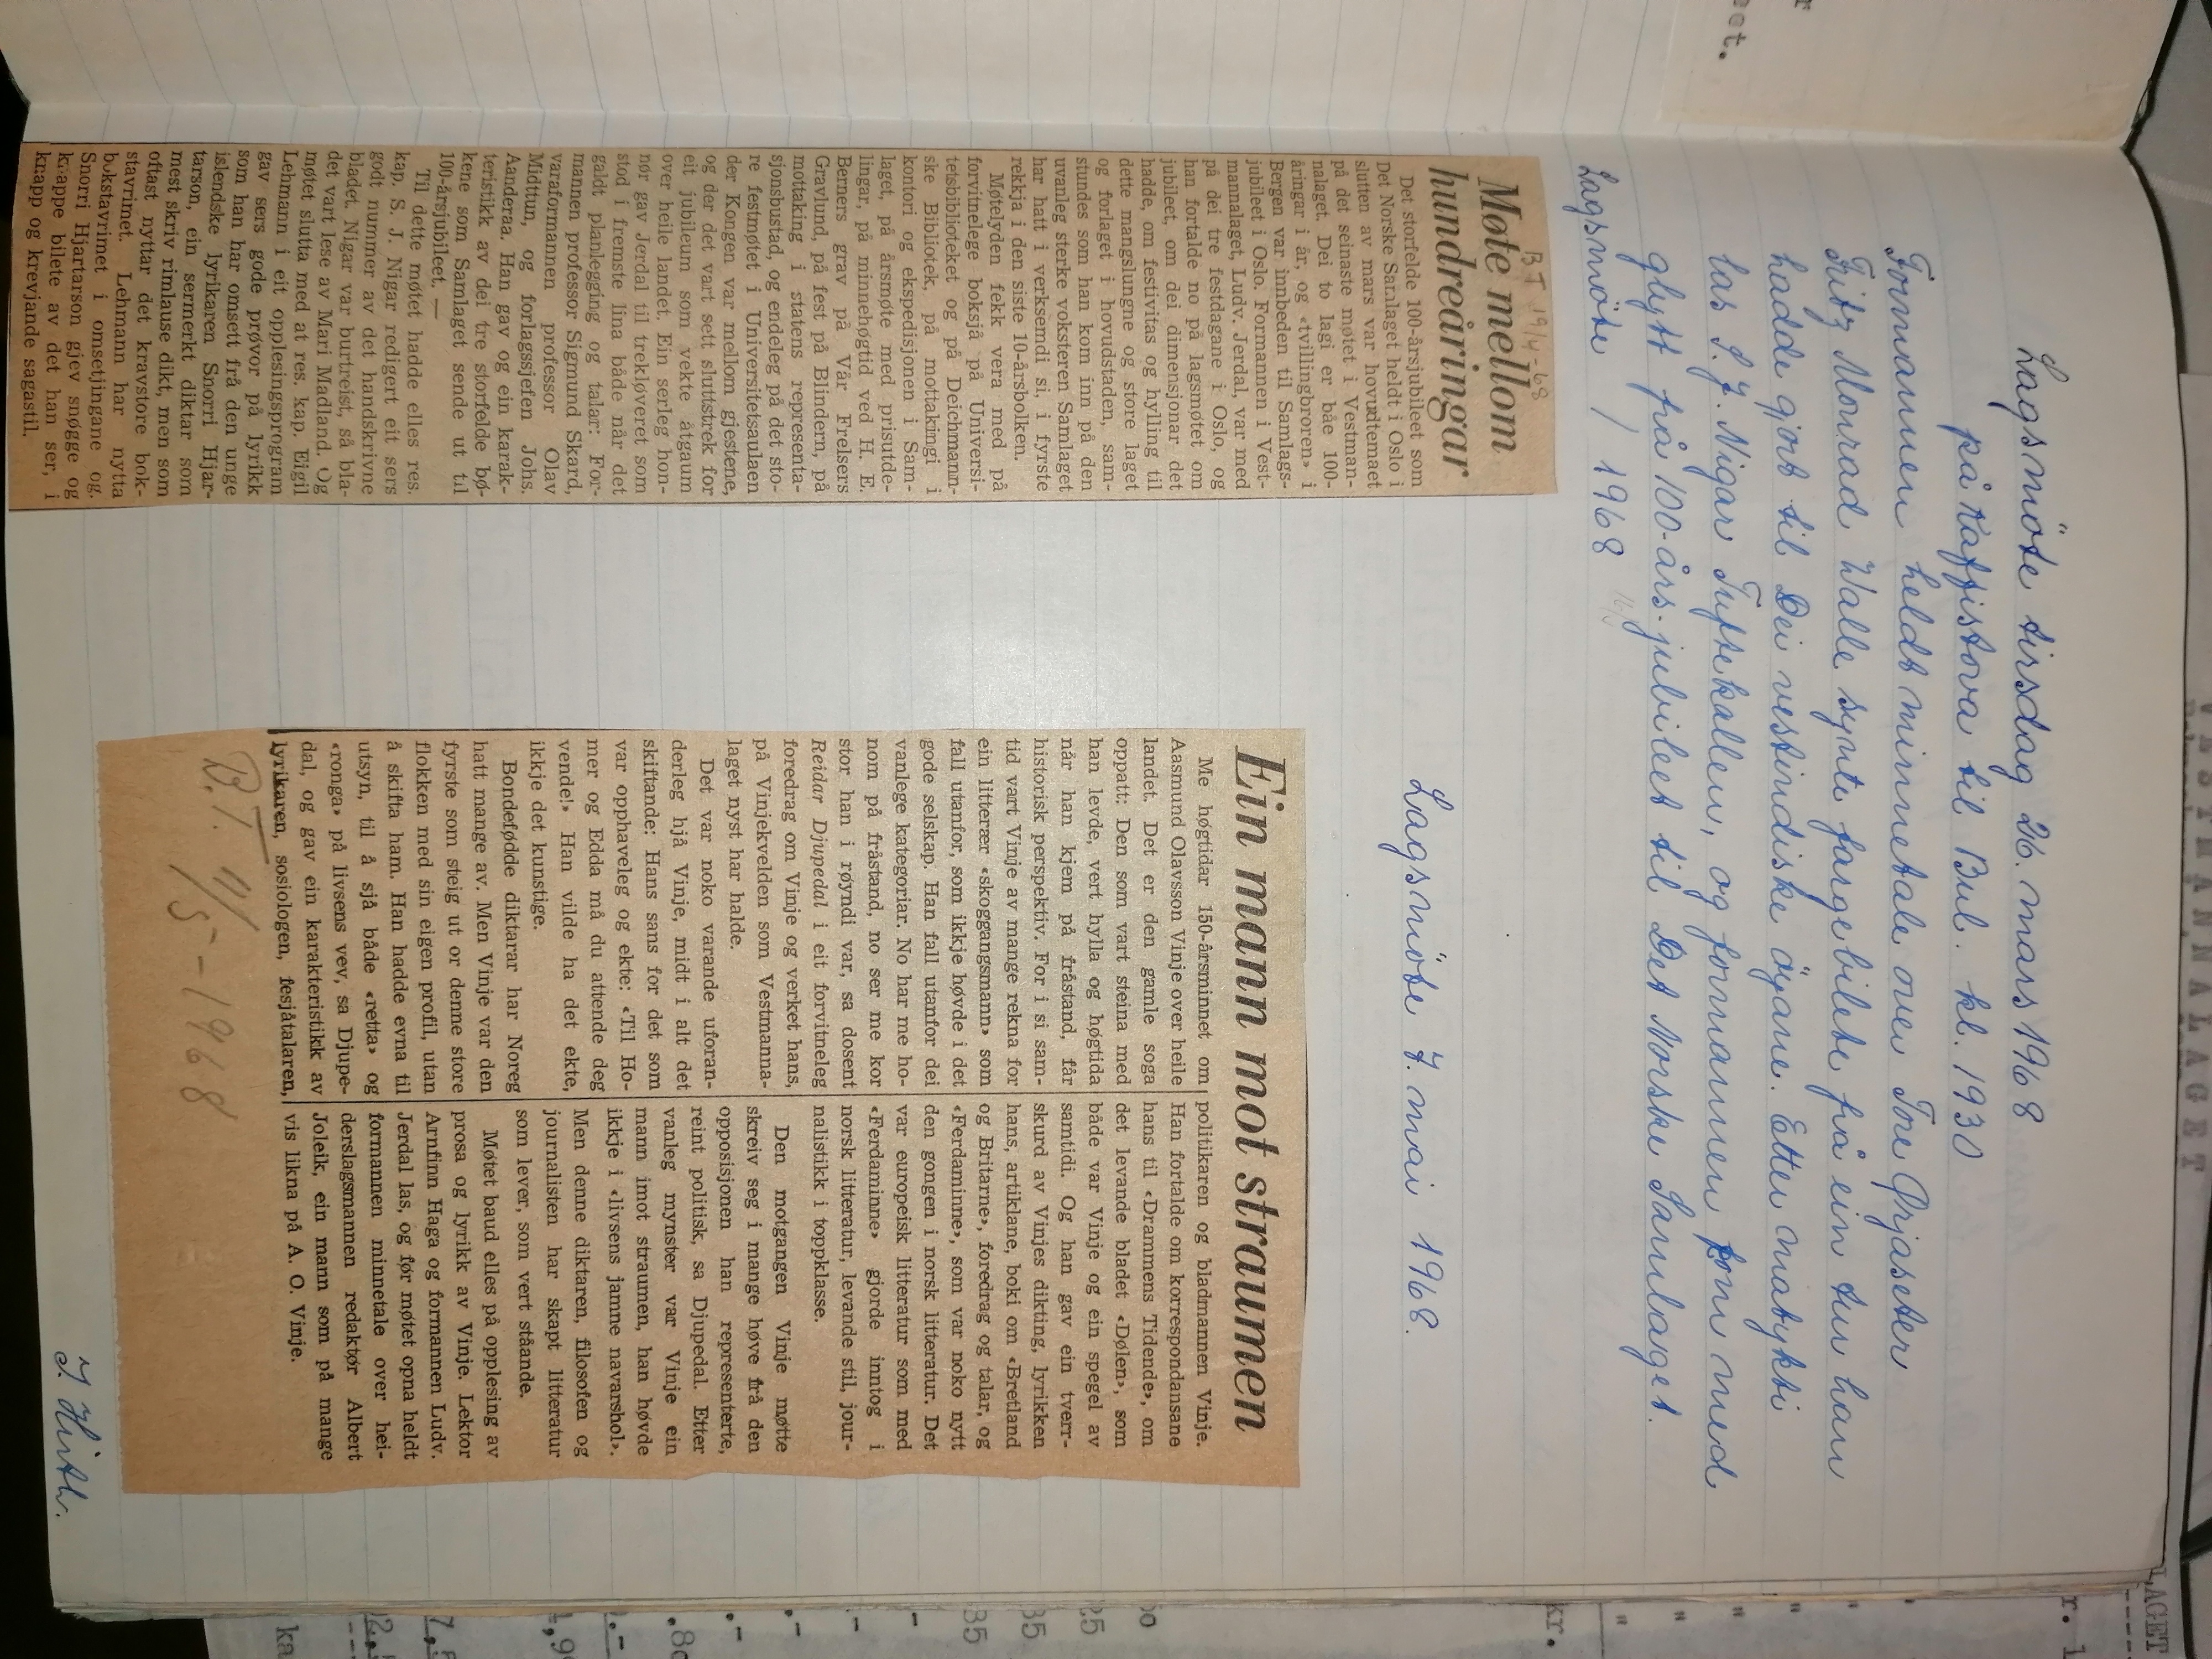 Lagsmöte tirsdag 26. mars 1968
på Kaffistova til Bul. kl. 1930
Formannen heldt minnetale over Tore Ørjasæter
Fritz Monrad Walle synte fargebilete frå ein tur han
hadde gjort til Dei vestindiske öyane. Etter matykti
las S. J. Nigar Tuftekallen, og formannen kom med
glytt frå 100-års-jubileet til Det Norske Samlaget.
Lagsmöte / 1968
BT 19/4-68
Møte mellom
hundreåringar
Det storfelde 100-årsjubileet som
Det Norske Samlaget heldt i Oslo i
slutten av mars var hovudtemaet
på det seinaste møtet i Vestman-
nalaget. Dei to lagi er båe 100-
åringar i år, og «tvillingbroren» i
Bergen var innbeden til Samlags-
jubileet i Oslo. Formannen i Vest-
mannalaget, Ludv. Jerdal, var med
på dei tre festdagane i Oslo, og
han fortalde no på lagsmøtet om
jubileet, om dei dimensjonar det
hadde, om festivitas og hylling til
dette mangslungne og store laget
og forlaget i hovudstaden, sam-
stundes som han kom inn på den
uvanleg sterke voksteren Samlaget
har hatt i verksemdi si, i fyrste
rekkja i den siste 10-årsbolken.
Møtelyden fekk vera med på
forvitnelege boksjå på Universi-
tetsbiblioteket og på Deichmann-
ske Bibliotek, på mottakingi i
kontori og ekspedisjonen i Sam-
laget, på årsmøte med prisutde-
lingar, på minnehøgtid ved H. E.
Berners grav på Vår Frelsers
Gravlund, på fest på Blindern, på
mottaking i statens representa-
sjonsbustad, og endeleg på det sto-
re festmøtet i Universitetsaulaen
der Kongen var mellom gjestene,
og der det vart sett sluttstrek for
eit jubileum som vekte åtgaum
over heile landet. Ein serleg hon-
nør gav Jerdal til trekløveret som
stod i fremste lina både når det
galdt planlegging og talar: For-
mannen professor Sigmund Skard,
varaformannen professor Olav
Midttun, og forlagssjefen Johs.
Aanderaa. Han gav og ein karak-
teristikk av dei tre storfelde bø-
kene som Samlaget sende ut til
100-årsjubileet. —
Til dette møtet hadde elles res.
kap. S. J. Nigar redigert eit sers
godt nummer av det handskrivne
bladet. Nigar var burtreist, så bla-
det vart lese av Mari Madland. Og
møtet slutta med at res. kap. Eigil
Lehmann i eit opplesingsprogram
gav sers gode prøvor på lyrikk
som han har omsett frå den unge
islendske lyrikaren Snorri Hjar-
tarson, ein sermerkt diktar som
mest skriv rimlause dikt, men som
oftast nyttar det kravstore bok-
stavrimet. Lehmann har nytta
bokstavrimet i omsetjingane og
Snorri Hjartarson gjev snøgge og
knappe bilete av det han ser, i
knapp og krevjande sagastil.
Lagsmöte 7. mai 1968.
Ein mann mot straumen
Me høgtidar 150-årsminnet om
Aasmund Olavsson Vinje over heile
landet. Det er den gamle soga
oppatt: Den som vart steina med
han levde, vert hylla og høgtida
når han kjem på fråstand, får
historisk perspektiv. For i si sam-
tid vart Vinje av mange rekna for
ein litterær «skoggangsmann» som
fall utanfor, som ikkje høvde i det
gode selskap. Han fall utanfor dei
vanlege kategoriar. No har me ho-
nom på fråstand, no ser me kor
stor han i røyndi var, sa dosent
Reidar Djupedal i eit forvitneleg
foredrag om Vinje og verket hans,
på Vinjekvelden som Vestmanna-
laget nyst har halde.
Det var noko varande uforan-
derleg hjå Vinje, midt i alt det
skiftande: Hans sans for det som
var opphaveleg og ekte: «Til Ho-
mer og Edda må du attende deg
vende!» Han vilde ha det ekte,
ikkje det kunstige.
Bondefødde diktarar har Noreg
hatt mange av. Men Vinje var den
fyrste som steig ut or denne store
flokken med sin eigen profil, utan
å skifta ham. Han hadde evna til
utsyn, til å sjå både «retta» og
«ronga» på livsens vev, sa Djupe-
dal, og gav ein karakteristikk av
lyrikaren, sosiologen, fesjåtalaren,
politikaren og bladmannen Vinje.
Han fortalde om korrespondansane
hans til «Drammens Tidende», om
det levande bladet «Dølen», som
både var Vinje og ein spegel av
samtidi. Og han gav ein tverr-
skurd av Vinjes dikting, lyrikken
hans, artiklane, boki om «Bretland
og Britarne», foredrag og talar, og
«Ferdaminne», som var noko nytt
den gongen i norsk litteratur. Det
var europeisk litteratur som med
«Ferdaminne» gjorde inntog i
norsk litteratur, levande stil, jour-
nalistikk i toppklasse.
Den motgangen Vinje møtte
skreiv seg i mange høve frå den
opposisjonen han representerte,
reint politisk, sa Djupedal. Etter
vanleg mynster var Vinje ein
mann imot straumen, han høvde
ikkje i «livsens jamne navarshol».
Men denne diktaren, filosofen og
journalisten har skapt litteratur
som lever, som vert ståande.
Møtet baud elles på opplesing av
prosa og lyrikk av Vinje. Lektor
Arnfinn Haga og formannen Ludv.
Jerdal las, og før møtet opna heldt
formannen minnetale over hei-
derslagsmannen redaktør Albert
Joleik, ein mann som på mange
vis likna på A. O. Vinje.
D.T. 11/5-1968